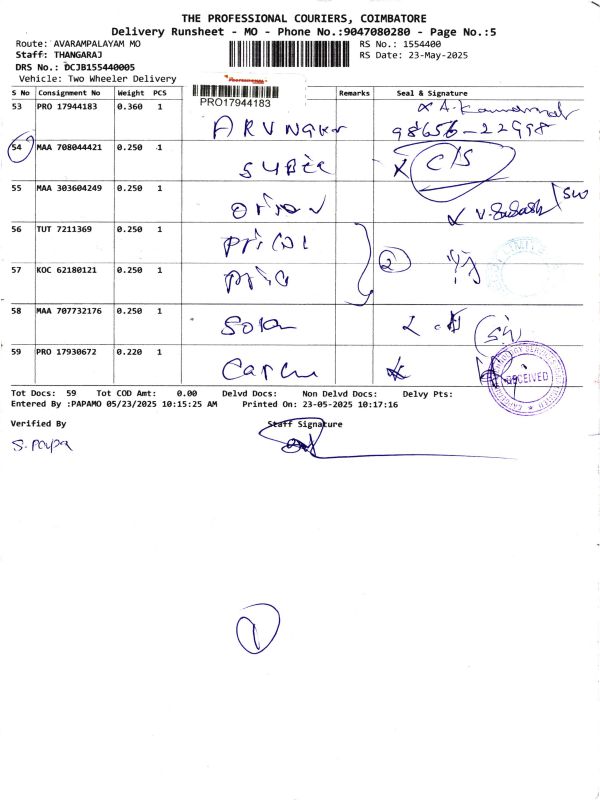 THE PROFESSIONAL COURIERS, COIMBATORE
Delivery Runsheet - MO - Phone No.:9047080280 - Page No.:5
Route: AVARAMPALAYAM MO RS No.: 1554400
Staff: THANGARAJ RS Date: 23-May-2025
DRS No.: DCJB155440005
Vehicle: Two Wheeler Delivery
PRO17944183
S No Consignment No Weight PCS Remarks Seal & Signature
53 PRO 17944183 0.360 1
98656-22998
54 MAA 708044421 0.250 1 C/S
55 MAA 303604249 0.250 1
56 TUT 7211369 0.250 1
2
57 KOC 62180121 0.250 1
58 MAA 707732176 0.250 1
59 PRO 17930672 0.220 1
RECEIVED
Tot Docs: 59 Tot COD Amt: 0.00 Delvd Docs: Non Delvd Docs: Delvy Pts:
Entered By :PAPAMO 05/23/2025 10:15:25 AM Printed On: 23-05-2025 10:17:16
Verified By Staff Signature
S. Papa
1